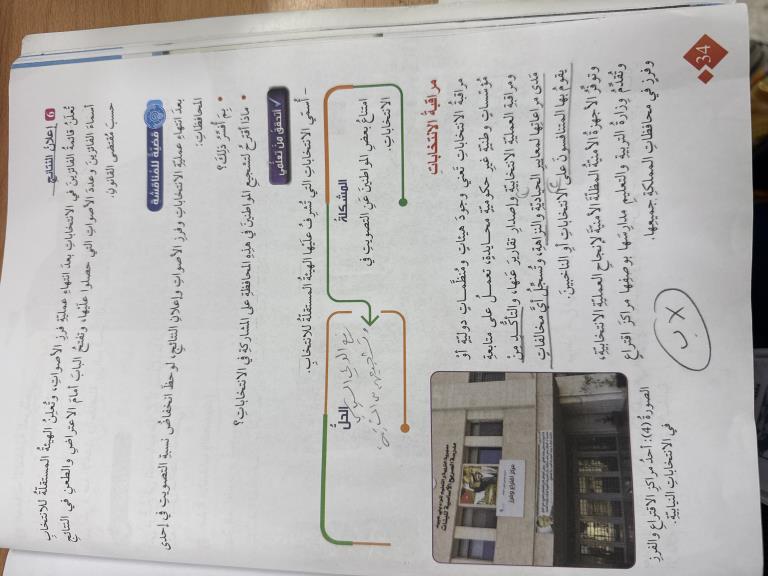 6 إعلانُ النتائجِ
تُعلَنُ قائمةُ الفائزينَ في الانتخاباتِ بعدَ انتهاءِ عمليّةِ فرزِ الأصواتِ، وتُعلِنُ الهيئةُ المستقلّةُ للانتخابِ
أسماءَ الفائزينَ وعددَ الأصواتِ التي حصلوا عليْها، وتفتحُ البابَ أمامَ الاعتراضِ والطعنِ في النتائجِ
حسبَ مُقتضى القانونِ.
قضيّةٌ للمُناقشةِ
بعدَ انتهاءِ عمليّةِ الانتخاباتِ وفرزِ الأصواتِ وإعلانِ النتائجِ، لوحظَ انخفاضُ نسبةِ التصويتِ في إحدى
المحافظاتِ:
• بِمَ أُفسِّرُ ذلكَ؟
• ماذا أقترحُ لتشجيعِ المواطنينَ في هذهِ المحافظةِ على المشاركةِ في الانتخاباتِ؟
✓ أتحقّقُ مِنْ تعلُّمي
- أُسمّي الانتخاباتِ التي تُشرِفُ عليْها الهيئةُ المستقلّةُ للانتخابِ.
المشكلةُ
امتناعُ بعضِ المواطنينَ عنِ التصويتِ في
الانتخاباتِ.
الحلُّ
مراقبةُ الانتخاباتِ
مراقبةُ الانتخاباتِ تعني وجودَ هيئاتٍ ومُنظّماتٍ دوليّةٍ أوْ
مُؤسّساتٍ وطنيّةٍ غيرِ حكوميّةٍ محايدةٍ، تعملُ على متابعةِ
ومراقبةِ العمليّةِ الانتخابيّةِ وإصدارِ تقاريرَ عنها، والتأكُّدِ مِنْ
مَدى مراعاتِها لمعاييرِ الحياديّةِ والنزاهةِ، وتُسجِّلُ أيَّ مخالفاتٍ
يقومُ بها المتنافسونَ على الانتخاباتِ أوِ الناخبينَ.
وتوفّرُ الأجهزةُ الأمنيّةُ المظلّةَ الأمنيّةَ لإنجاحِ العمليّةِ الانتخابيّةِ،
وتُقدِّمُ وِزارةُ التربيةِ والتعليمِ مدارسَها بوصفِها مراكزَ اقتراعٍ
وفرزٍ في محافظاتِ المملكةِ جميعِها.
مركز اقتراع وفرز
الصورةُ (4): أحدُ مراكزِ الاقتراعِ والفرزِ
في الانتخاباتِ النيابيّةِ.
34